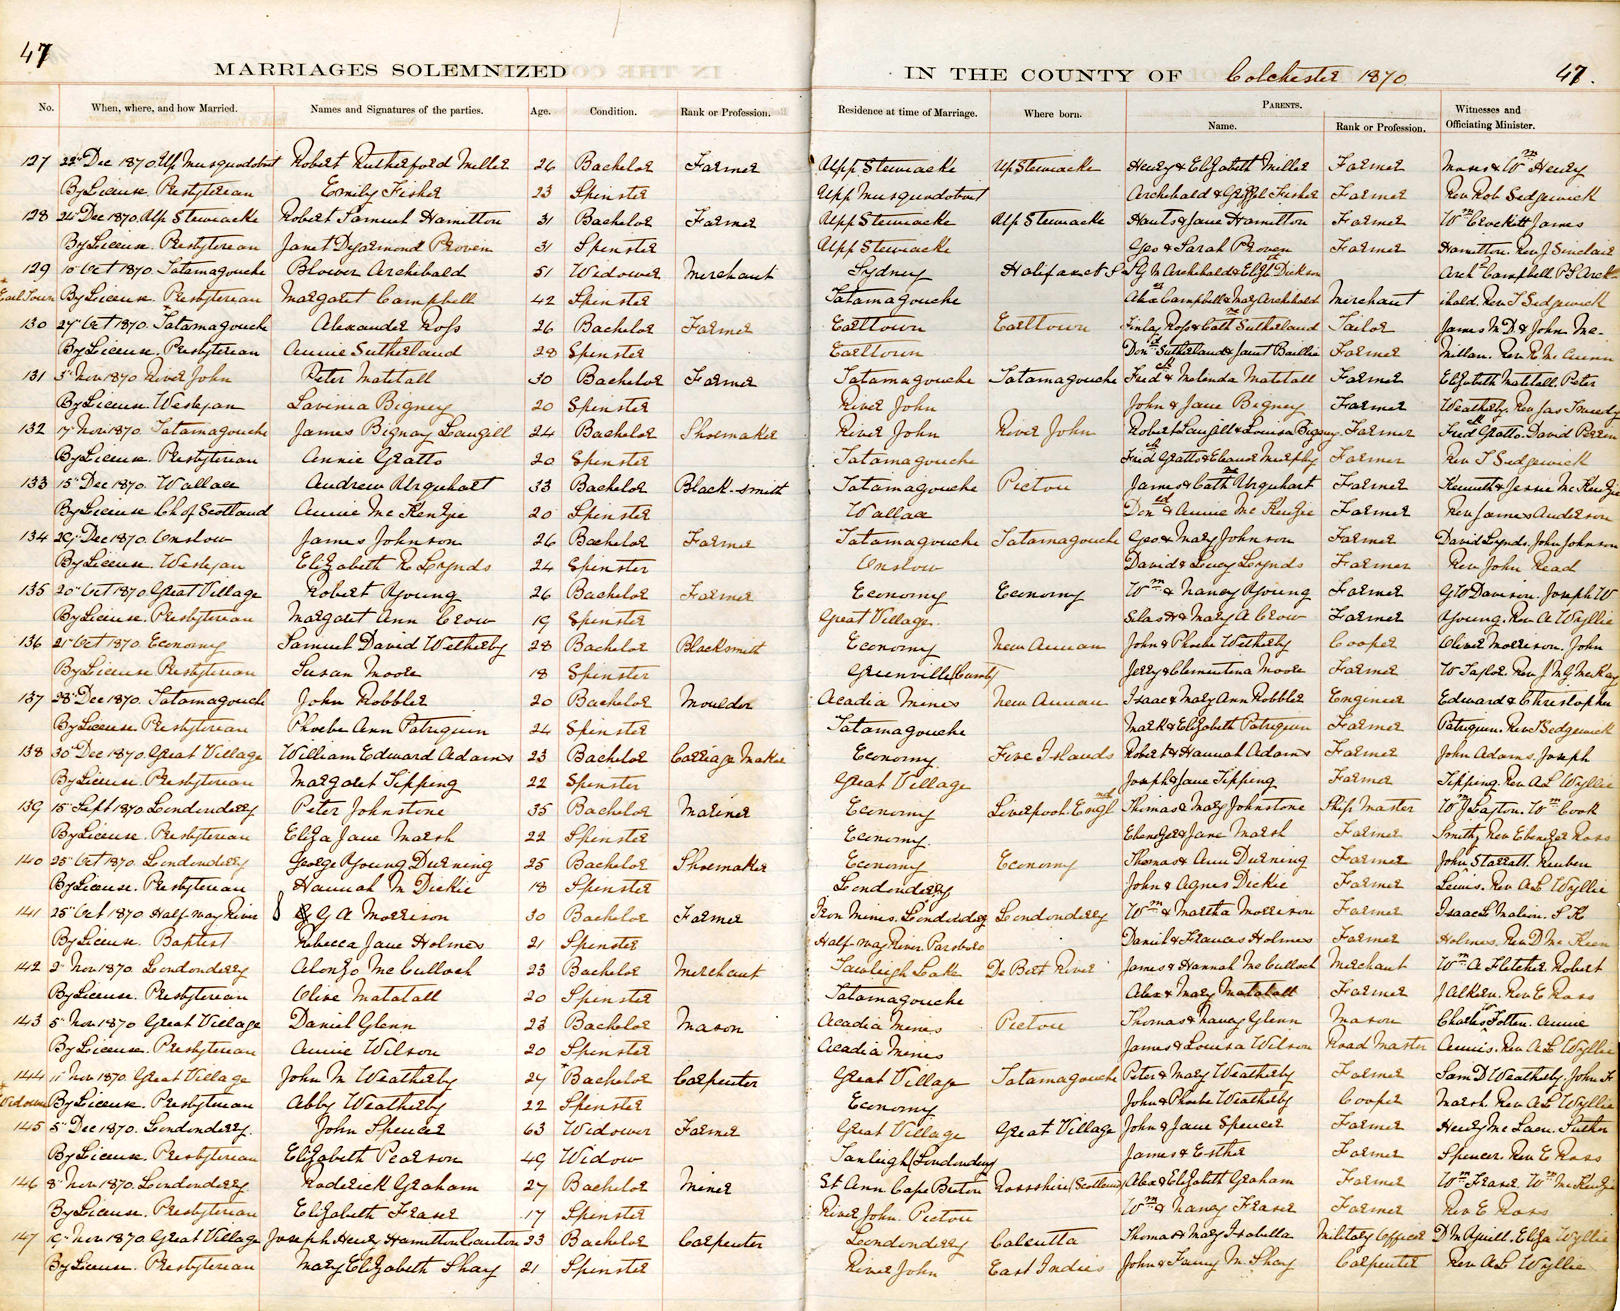 47
MARRIAGES SOLEMNIZED IN THE COUNTY OF Colchester 1870. 47.
No. When, where, and how Married. Names and Signatures of the parties. Age. Condition. Rank or Profession. Residence at time of Marriage. Where born. PARENTS. Witnesses and
Name. Rank or Profession. Officiating Minister.
127 22nd Dec 1870 Up Musquodobot Robert Rutherford Miller 26 Bachelor Farmer Upp Stewiacke Up Stewiacke Henry & Elizabeth Miller Farmer & Wm Henry
By License. Presbyterian Emily Fisher 23 Spinster Upp Musquodobot Archibald & Fisher Farmer Rev Rob Sedgewick
128 24 Dec 1870. Up Stewiacke Robert Samuel Hamilton 31 Bachelor Farmer Upp Stewiacke Up Stewiacke & Jane Hamilton Farmer Wm Crockett James
By License. Presbyterian Janet Dyarmond Proven 31 Spinster Upp Stewiacke Geo & Sarah Proven Farmer Hamilton. Rev J Sinclair
129 10 Oct 1870. Tatamagouche Blower Archibald 51 Widower Merchant Sydney Halifax N S S G W Archibald & Elizth Dickson Archd Campbell P S Arch-
+ Earl Town By License. Presbyterian Margaret Campbell 42 Spinster Tatamagouche Alexr Campbell & Mary Archibald Merchant ibald. Rev T Sedgewick
130 27 Oct 1870. Tatamagouche Alexander Ross 26 Bachelor Farmer Earltown Earltown Finlay Ross & Cathne Sutherland Tailor James McD. & John Mc-
By License. Presbyterian Annie Sutherland 28 Spinster Earltown Dond Sutherland & Janet Baillie Farmer Millan. Rev R McCunn
131 3 Nov 1870 River John Peter Matatall 30 Bachelor Farmer Tatamagouche Tatamagouche Fredck & Malinda Matatall Farmer Elizabeth Matatall. Peter
By License. Wesleyan Lavinia Bigney 20 Spinster River John John & Jane Bigney Farmer Weatherby. Rev Jas Tweedy
132 17 Nov 1870 Tatamagouche James Bignay Langill 24 Bachelor Shoemaker River John River John Robert Langill & Louisa Bigney. Farmer Fredck Gratto. David Perrin
By License. Presbyterian Annie Gratto 20 Spinster Tatamagouche Fredck Gratto & Eleanor Murphy Farmer Rev T Sedgewick
133 15 Dec 1870. Wallace Andrew Urquhart 33 Bachelor Black-smith Tatamagouche Pictou James & Cathne Urquhart Farmer Kenneth & Jessie McKenzie
By License Ch of Scotland Annie McKenzie 20 Spinster Wallace Dond & Annie McKenzie Farmer Rev James Anderson
134 29 Dec 1870. Onslow James Johnson 26 Bachelor Farmer Tatamagouche Tatamagouche Geo & Mary Johnson Farmer David Lynds. John Johnson
By License. Wesleyan Elizabeth R Lynds 24 Spinster Onslow David & Lucy Lynds Farmer Rev John Read
135 20 Oct 1870. Great Village Robert Young 26 Bachelor Farmer Economy Economy Wm & Nancy Young Farmer G W Davison. Joseph W
By License. Presbyterian Margaret Ann Crow 19 Spinster Great Village. Silas H & Mary A Crow Farmer Young. Rev A Wyllie
136 21 Oct 1870. Economy Samuel David Wetherby 28 Bachelor Blacksmith Economy New Annan John & Phoebe Wetherby Cooper Oliver Morrison. John
By License Presbyterian Susan Moore 18 Spinster Greenville (Cumb) Jerry & Clementina Moore Farmer W Taylor. Rev J McG McKay
137 28 Dec 1870. Tatamagouche John Robbler 20 Bachelor Moulder Acadia Mines New Annan Isaac & Mary Ann Robbler Engineer Edward & Christopher
By License Presbyterian Phoebe Ann Patriquin 24 Spinster Tatamagouche Mark & Elizabeth Patriquin Farmer Patriquin. Rev T Sedgewick
138 30 Dec 1870. Great Village William Edward Adams 23 Bachelor Carriage Maker Economy. Five Islands Robert & Hannah Adams Farmer John Adams. Joseph
By License. Presbyterian Margaret Tipping 22 Spinster Great Village Joseph & Jane Tipping Farmer Tipping. Rev A L Wyllie
139 15 Sept 1870 Londonderry Peter Johnstone 35 Bachelor Mariner Economy Liverpool. Engld Thomas & Mary Johnstone Ship Master Wm J Layton. Wm Cook
By License. Presbyterian Eliza Jane Marsh 22 Spinster Economy. Ebenezer & Jane Marsh Farmer Smith, Rev Ebenezer Ross
140 25 Oct 1870. Londonderry George Young Durning 25 Bachelor Shoemaker Economy Economy Thomas & Ann Durning Farmer John Starratt. Reuben
By License. Presbyterian Hannah M Dickie 18 Spinster Londonderry John & Agnes Dickie Farmer Lewis. Rev A L Wyllie
141 25 Oct 1870 Half way River G A Morrison 30 Bachelor Farmer Iron Mines. Londonderry Londonderry Wm & Martha Morrison Farmer Isaac L S H
By License. Baptist Rebecca Jane Holmes 21 Spinster Half way River Parsboro Daniel & Frances Holmes Farmer Holmes. Rev D McKeen
142 2 Nov 1870. Londonderry Alonzo McCulloch 23 Bachelor Merchant Lake De Bert River James & Hannah McCulloch Merchant Wm A Fletcher. Robert
By License. Presbyterian Olive Matatall 20 Spinster Tatamagouche Alex & Mary Matatall Farmer J Rev E Ross
143 5 Nov 1870 Great Village Daniel Glenn 23 Bachelor Mason Acadia Mines Pictou Thomas & Nancy Glenn Mason Charles Totten. Annie
By License. Presbyterian Annie Wilson 20 Spinster Acadia Mines James & Louisa Wilson Road Master Annis. Rev A L Wyllie
144 11 Nov 1870. Great Village John M Weatherby 27 +Bachelor Carpenter Great Village Tatamagouche Peter & Mary Weatherby Farmer Sam D Weatherby. John F
+ Widower By License. Presbyterian Abby Weatherby 22 Spinster Economy John & Phoebe Weatherby Cooper Marsh. Rev A L Wyllie
145 5 Dec 1870. Londonderry. John Spencer 63 Widower Farmer Great Village Great Village John & Jane Spencer Farmer Henry McLaen. Luther
By License. Presbyterian Elizabeth Pearson 49 Widow (Londonderry James & Esther Farmer Spencer. Rev E Ross
146 8 Nov 1870. Londonderry Roderick Graham 27 Bachelor Miner St Ann Cape Breton Rossshire (Scotland) Alex & Elizabeth Graham Farmer Wm Fraser. Wm McKenzie
By License. Presbyterian Elizabeth Fraser 17 Spinster River John. Pictou Wm & Nancy Fraser Farmer Rev E Ross
147 19 Nov 1870 Great Village Joseph Henry Hamilton 23 Bachelor Carpenter Londonderry Calcutta Thomas & Mary Isabella Military Officer D McQuill. Eliza Wyllie
By License. Presbyterian Mary Elizabeth Shay 21 Spinster River John East Indies John & Fanny M Shay Carpenter Rev A L Wyllie